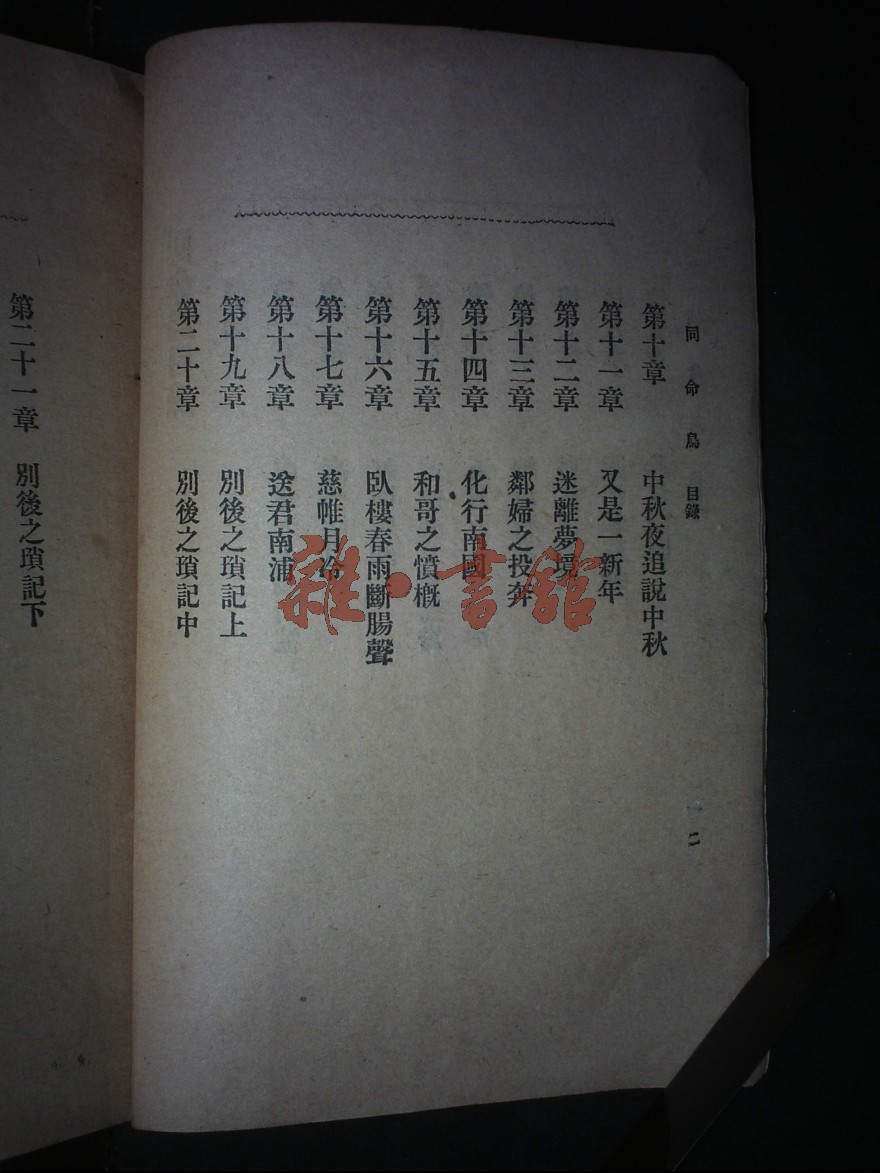 同命鳥 目錄
二
第十章 中秋夜追說中秋
第十一章 又是一新年
第十二章 迷離夢境
第十三章 鄰婦之投奔
第十四章 化行南國
第十五章 和哥之憤槪
第十六章 臥樓春雨斷腸聲
第十七章 慈帷月冷
第十八章 送君南浦
第十九章 別後之瑣記上
第二十章 別後之瑣記中
第二十一章 別後之瑣記下
雜·書館